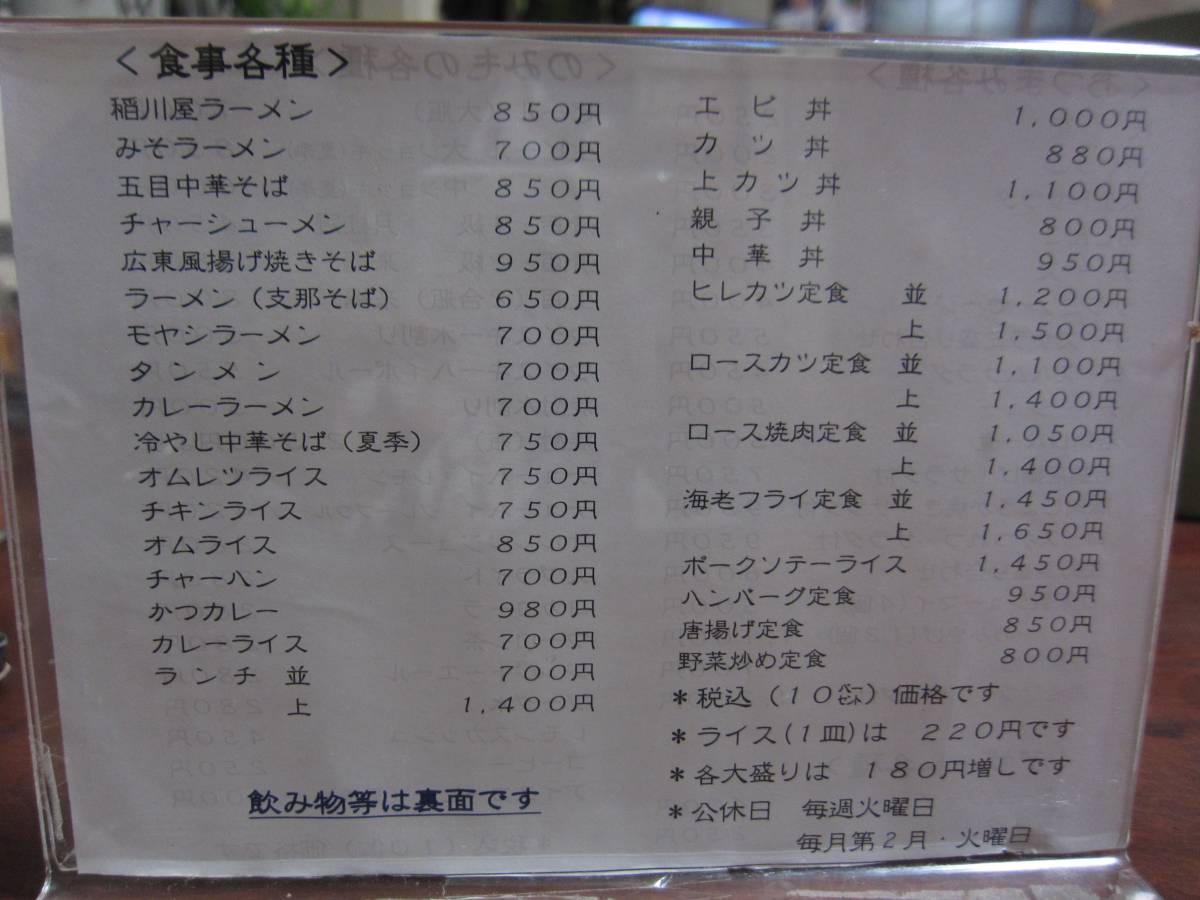 ＜食事各種＞
稲川屋ラーメン　８５０円
みそラーメン　７００円
五目中華そば　８５０円
チャーシューメン　８５０円
広東風揚げ焼きそば　９５０円
ラーメン（支那そば）　６５０円
モヤシラーメン　７００円
タンメン　７００円
カレーラーメン　７００円
冷やし中華そば（夏季）　７５０円
オムレツライス　７５０円
チキンライス　７５０円
オムライス　８５０円
チャーハン　７００円
かつカレー　９８０円
カレーライス　７００円
ランチ　並　７００円
上　１,４００円
飲み物等は裏面です
エビ丼　１,０００円
カツ丼　８８０円
上カツ丼　１,１００円
親子丼　８００円
中華丼　９５０円
ヒレカツ定食　並　１,２００円
上　１,５００円
ロースカツ定食　並　１,１００円
上　１,４００円
ロース焼肉定食　並　１,０５０円
上　１,４００円
海老フライ定食　並　１,４５０円
上　１,６５０円
ポークソテーライス　１,４５０円
ハンバーグ定食　９５０円
唐揚げ定食　８５０円
野菜炒め定食　８００円
＊税込（１０㌫）価格です
＊ライス(１皿)は　２２０円です
＊各大盛りは　１８０円増しです
＊公休日　毎週火曜日
毎月第２月・火曜日